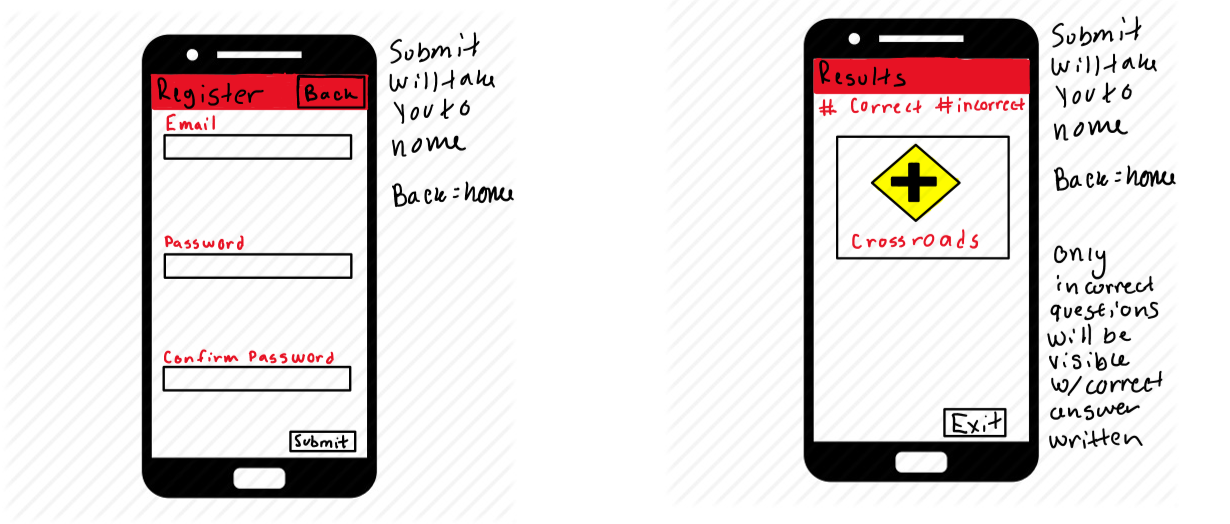 Register Back
Email
Password
Confirm Password
Submit
Submit
will take
you to
home
Back = home
Results
# Correct #incorrect
Crossroads
Exit
Submit
will take
you to
home
Back = home
only
incorrect
questions
will be
visible
w/correct
answer
written